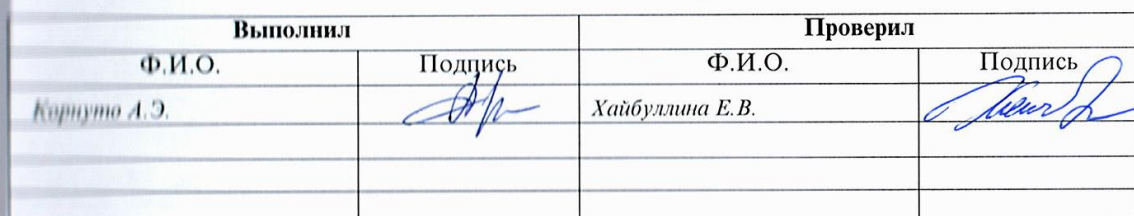 Выполнил Проверил
Ф.И.О. Подпись Ф.И.О. Подпись
Корнуто А.Э. Хайбуллина Е.В.